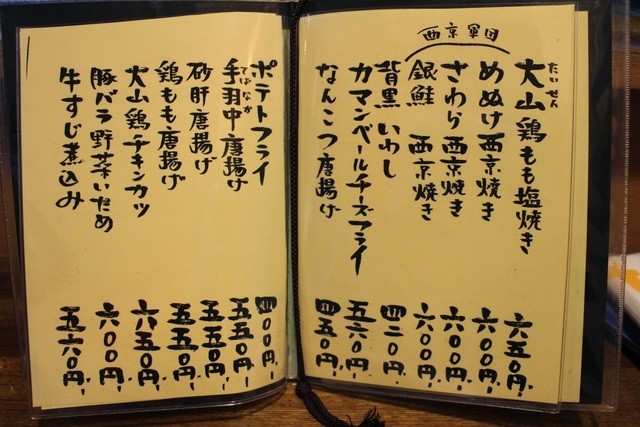 たいせん
大山鶏もも塩焼き 六五〇円
西京軍団
めぬけ西京焼き 六〇〇円
さわら西京焼き 六〇〇円
銀鮭 西京焼き 六〇〇円
背黒いわし 四二〇円
カマンベールチーズフライ 五六〇円
なんこつ唐揚げ 四五〇円
ポテトフライ 四〇〇円
てばなか
手羽中唐揚げ 五五〇円
砂肝唐揚げ 五五〇円
鶏もも唐揚げ 五五〇円
大山鶏チキンカツ 六五〇円
豚バラ野菜いため 六〇〇円
牛すじ煮込み 五六〇円